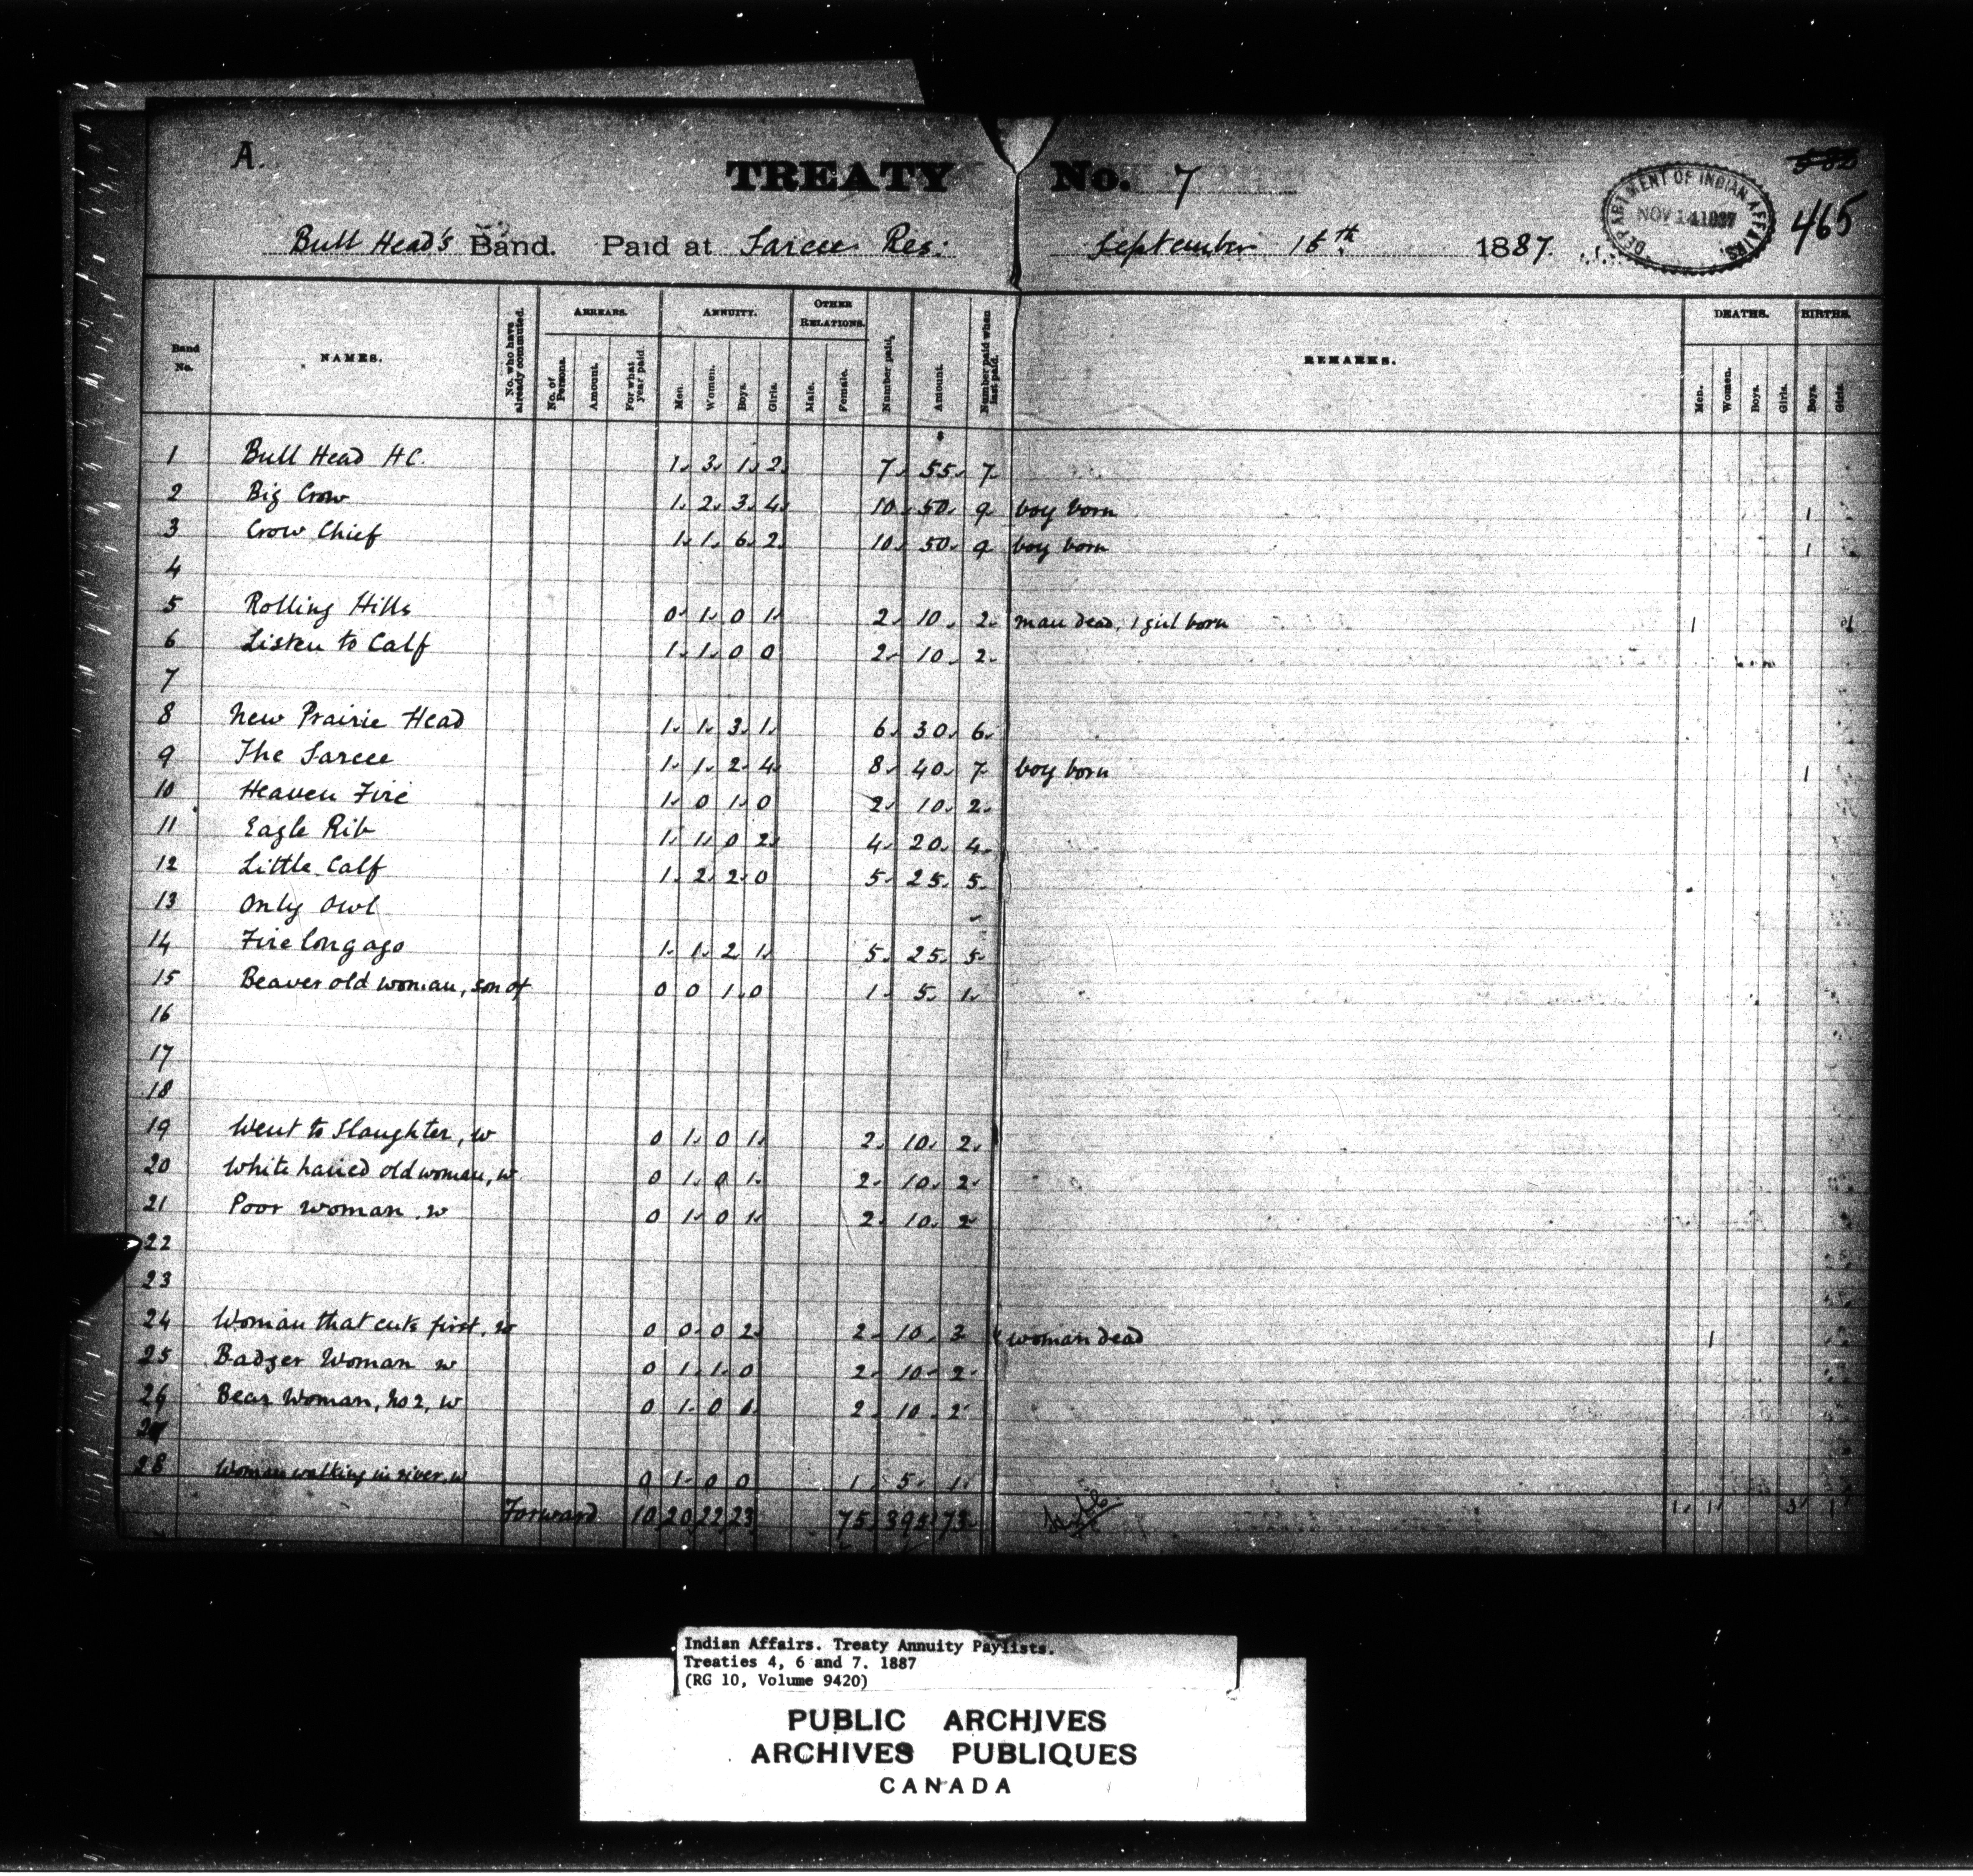 A.
TREATY No. 7
582
465
DEPARTMENT OF INDIAN AFFAIRS.
NOV 14 1887
Bull Head's Band. Paid at Sarcee Res: September 15th 1887.
Band No. NAMES. No. who have already commuted. ARREARS. No. of Persons. Amount. For what year paid. ANNUITY. Men. Women. Boys. Girls. OTHER RELATIONS. Male. Female. Number paid. Amount. Number paid when last paid. REMARKS. DEATHS. Men. Women. Boys. Girls. BIRTHS. Boys. Girls.
$
1 Bull Head HC. 1 3 1 2 7 55 7
2 Big Crow 1 2 3 4 10 50 9 boy born 1
3 Crow Chief 1 1 6 2 10 50 9 boy born 1
4
5 Rolling Hills 0 1 0 1 2 10 2 man dead, 1 girl born 1 1
6 Listen to Calf 1 1 0 0 2 10 2
7
8 New Prairie Head 1 1 3 1 6 30 6
9 The Sarcee 1 1 2 4 8 40 7 boy born 1
10 Heaven Fire 1 0 1 0 2 10 2
11 Eagle Rib 1 1 0 2 4 20 4
12 Little Calf 1 2 2 0 5 25 5
13 Only Owl
14 Fire long ago 1 1 2 1 5 25 5
15 Beaver old woman, son of 0 0 1 0 1 5 1
16
17
18
19 Went to Slaughter, w 0 1 0 1 2 10 2
20 White haired old woman, w 0 1 0 1 2 10 2
21 Poor Woman, w 0 1 0 1 2 10 2
22
23
24 Woman that cuts first, w 0 0 0 2 2 10 3 woman dead 1
25 Badger Woman w 0 1 1 0 2 10 2
26 Bear Woman, No 2, w 0 1 0 1 2 10 2
27
28 Woman walking in river, w 0 1 0 0 1 5 1
Forward 10 20 22 23 75 395 73 1 1 3 1
Indian Affairs. Treaty Annuity Paylists.
Treaties 4, 6 and 7. 1887
(RG 10, Volume 9420)
PUBLIC ARCHIVES
ARCHIVES PUBLIQUES
CANADA